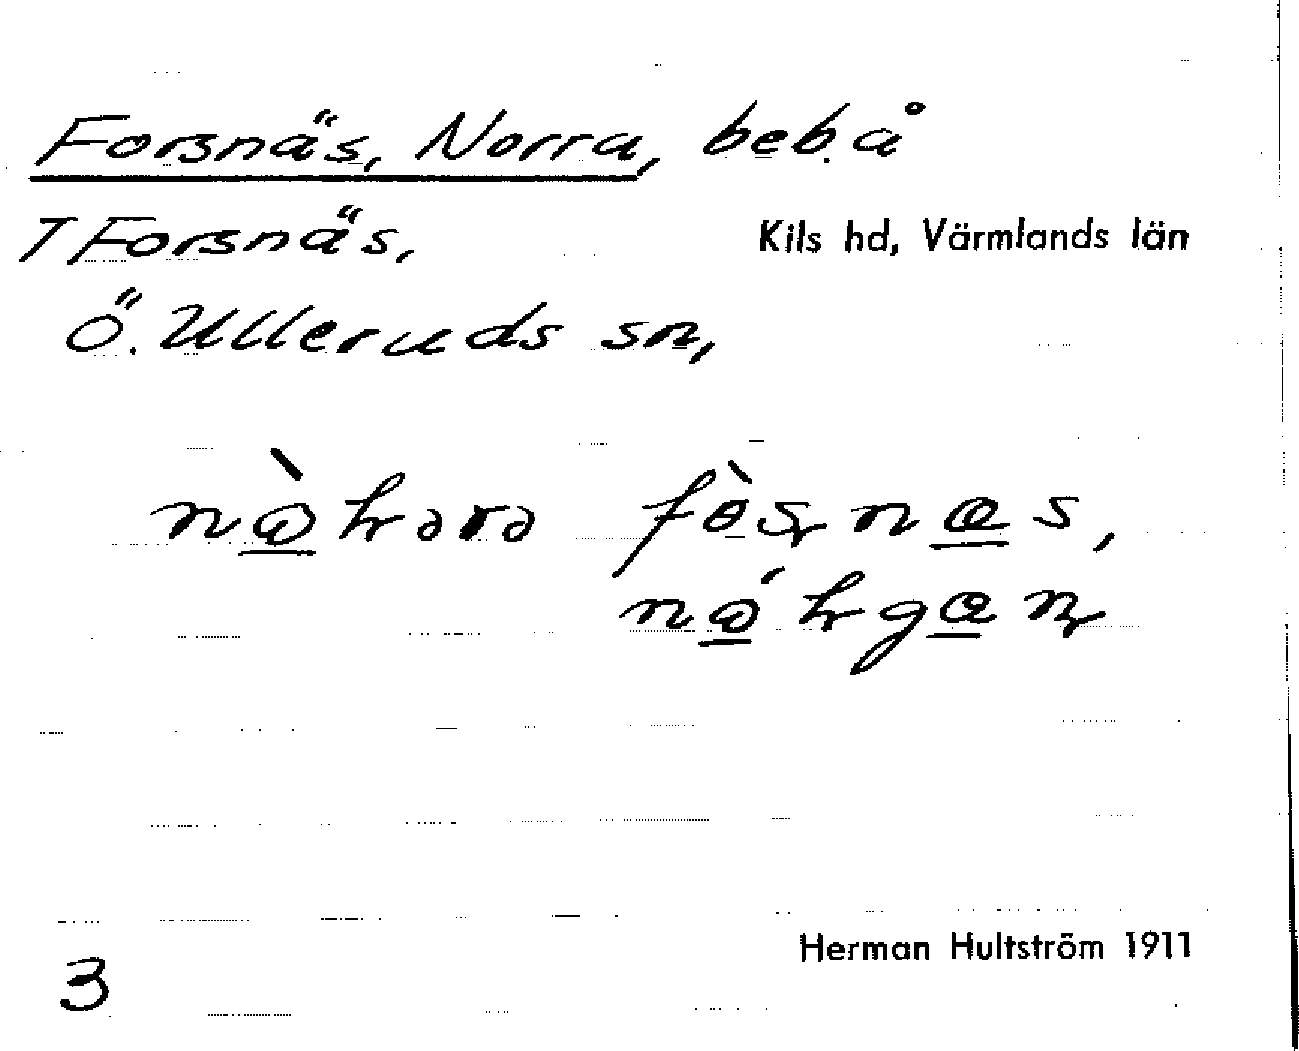 Forsnäs, Norra, beb. å
T Forsnäs, Kils hd, Värmlands län
Ö. Ulleruds sn,
Herman Hultström 1911
3